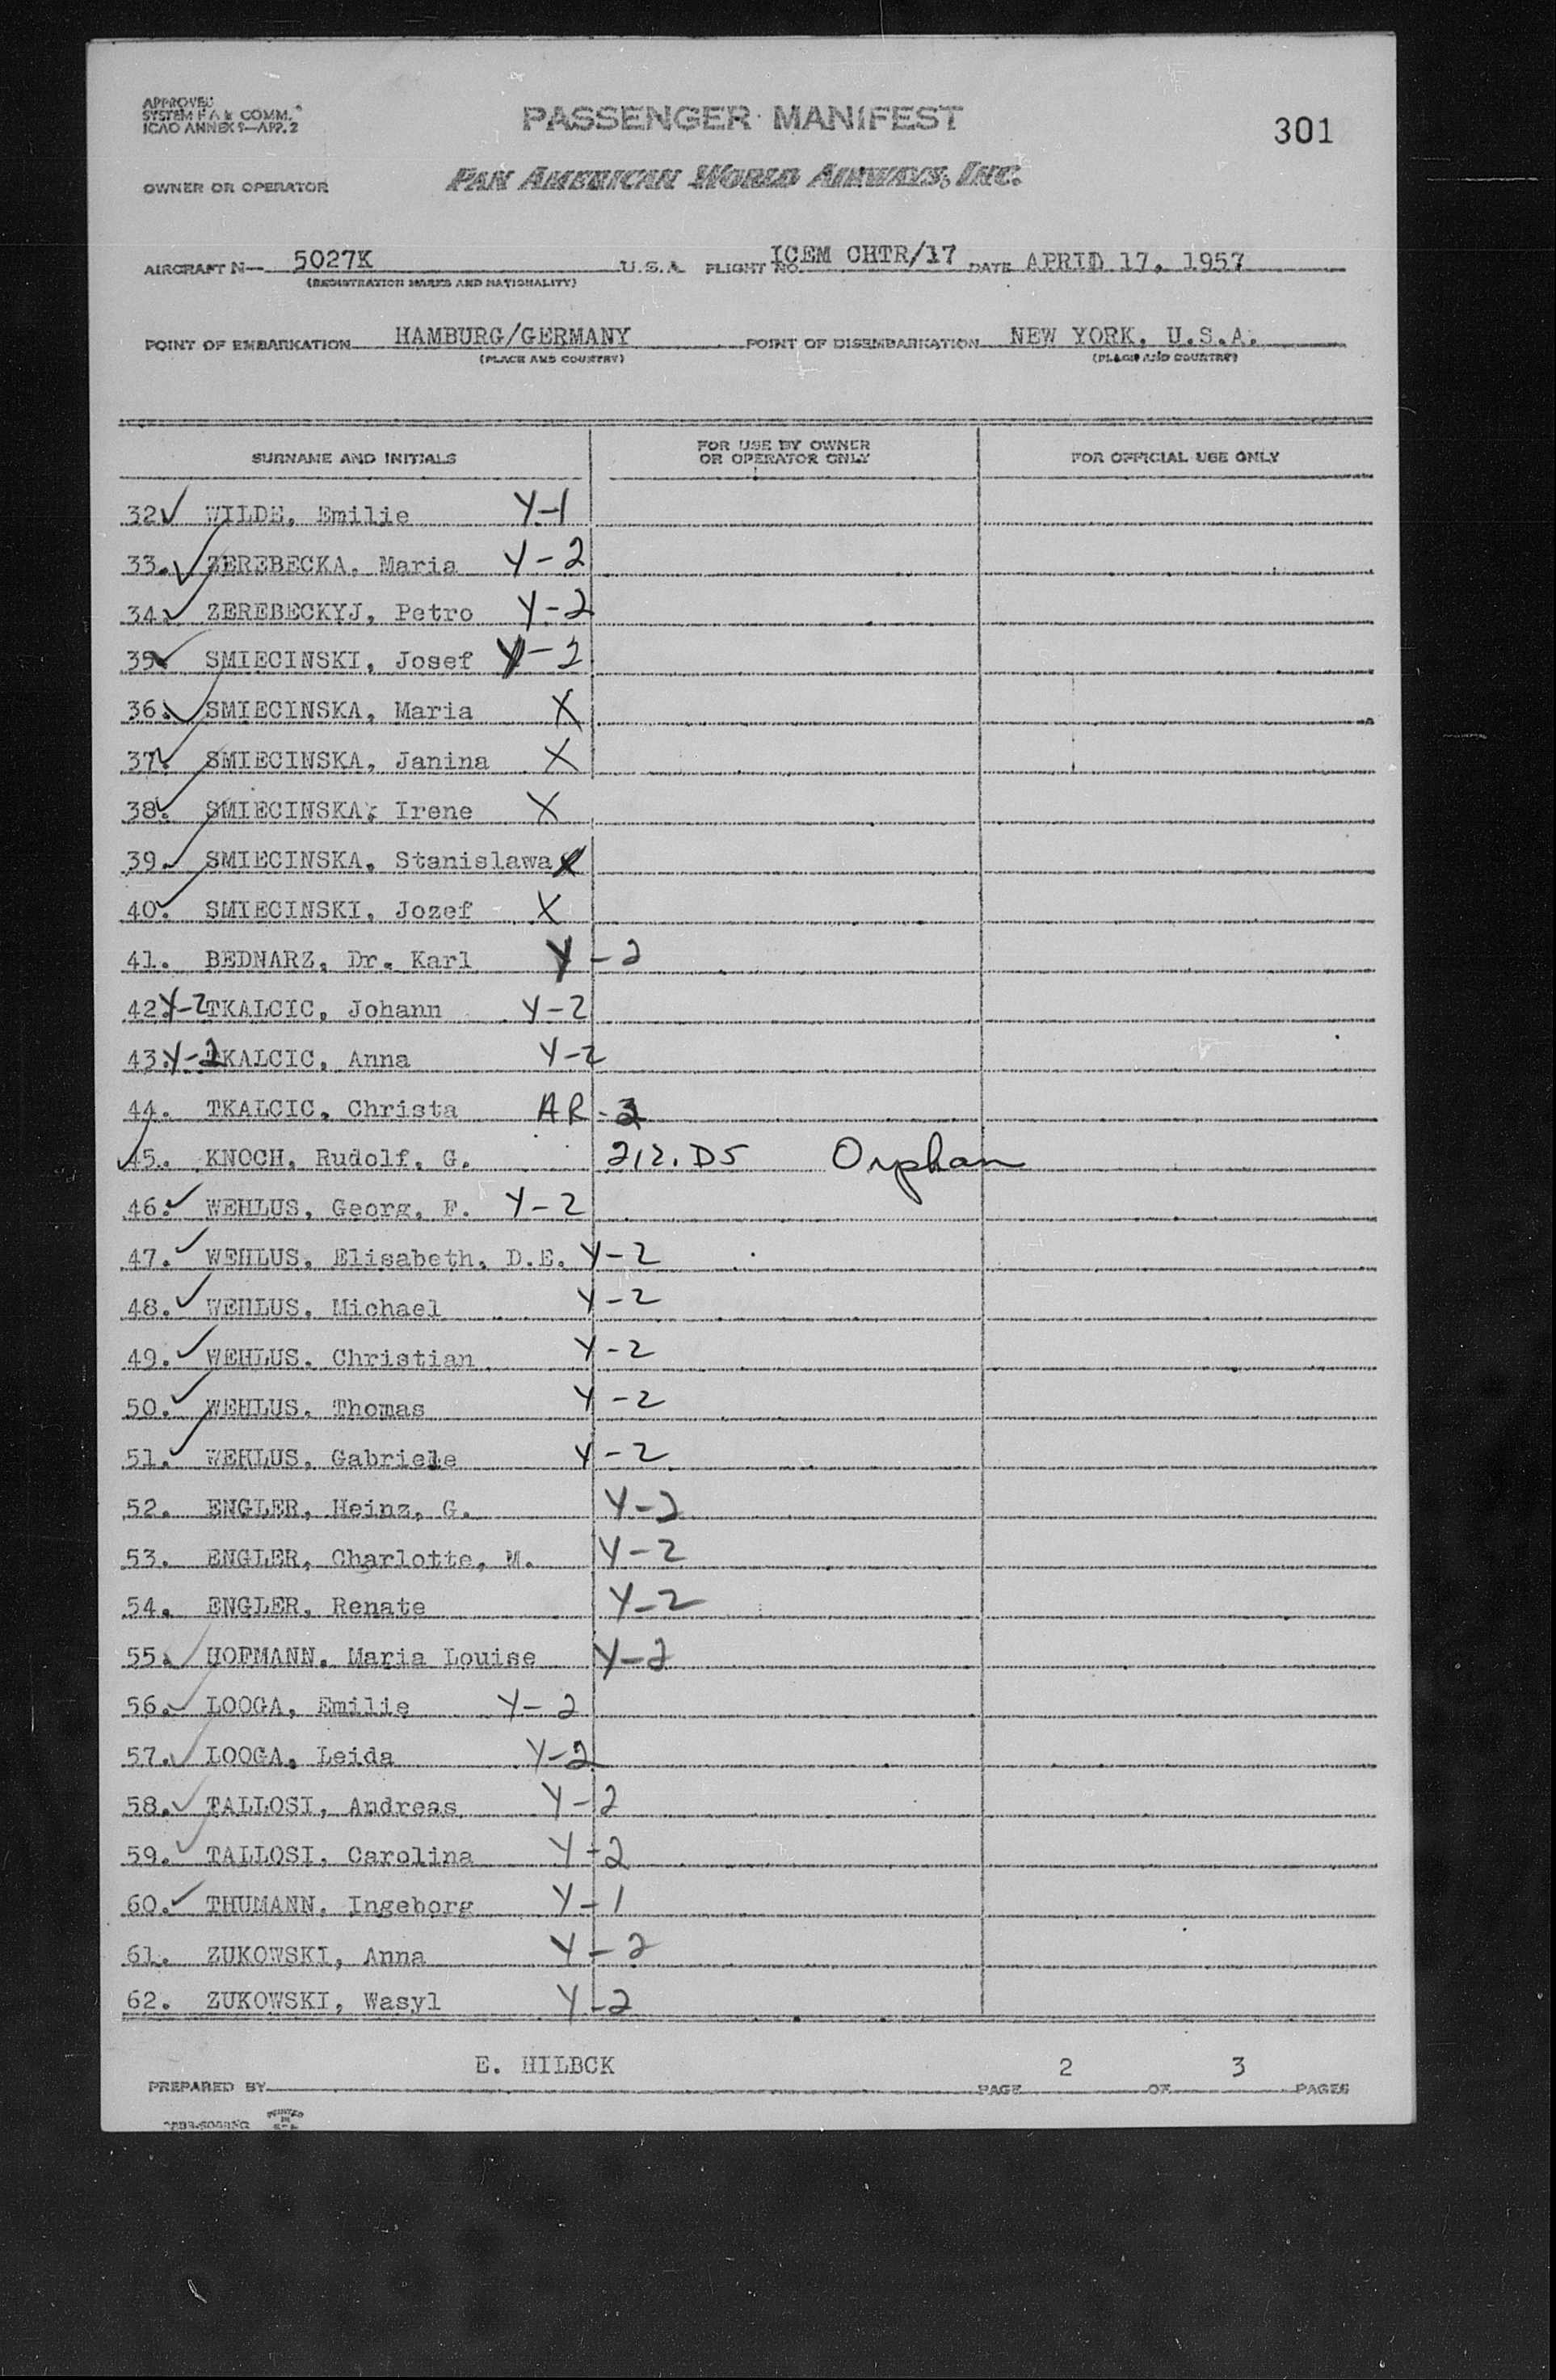 APPROVED
SYSTEM F A & COMM.
ICAO ANNEX 9—APP. 2
PASSENGER MANIFEST
301
OWNER OR OPERATOR
PAN AMERICAN WORLD AIRWAYS, INC.
AIRCRAFT N— 5027K U.S.A. FLIGHT NO. ICEM CHTR/17 DATE APRID 17, 1957
(REGISTRATION MARKS AND NATIONALITY)
POINT OF EMBARKATION HAMBURG/GERMANY POINT OF DISEMBARKATION NEW YORK, U.S.A.
(PLACE AND COUNTRY) (PLACE AND COUNTRY)
SURNAME AND INITIALS FOR USE BY OWNER OR OPERATOR ONLY FOR OFFICIAL USE ONLY
32 ✓ WILDE, Emilie Y-1
33. ✓ ZEREBECKA, Maria Y-2
34 ✓ ZEREBECKYJ, Petro Y-2
35. ✓ SMIECINSKI, Josef Y-2
36. ✓ SMIECINSKA, Maria X
37. ✓ SMIECINSKA, Janina X
38. ✓ SMIECINSKA, Irene X
39. ✓ SMIECINSKA, Stanislawa X
40. ✓ SMIECINSKI, Jozef X
41. BEDNARZ, Dr. Karl Y-2
42. Y-2 TKALCIC, Johann Y-2
43. Y-2 TKALCIC, Anna Y-2
44. TKALCIC, Christa AR-3
45. ✓ KNOCH, Rudolf, G. 212.D5 Orphan
46. ✓ WEHLUS, Georg, F. Y-2
47. ✓ WEHLUS, Elisabeth, D.E. Y-2
48. ✓ WEHLUS, Michael Y-2
49. ✓ WEHLUS, Christian Y-2
50. ✓ WEHLUS, Thomas Y-2
51. ✓ WEHLUS, Gabriele Y-2
52. ENGLER, Heinz, G. Y-2
53. ENGLER, Charlotte, M. Y-2
54. ENGLER, Renate Y-2
55. ✓ HOFMANN, Maria Louise Y-2
56. ✓ LOOGA, Emilie Y-2
57. ✓ LOOGA, Leida Y-2
58. ✓ TALLOSI, Andreas Y-2
59. ✓ TALLOSI, Carolina Y-2
60. ✓ THUMANN, Ingeborg Y-1
61. ZUKOWSKI, Anna Y-2
62. ZUKOWSKI, Wasyl Y-2
PREPARED BY E. HILBCK PAGE 2 OF 3 PAGES
PRINTED IN U.S.A.